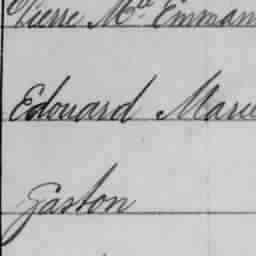 Pierre Mie Emman
Edouard Marie
Gaston